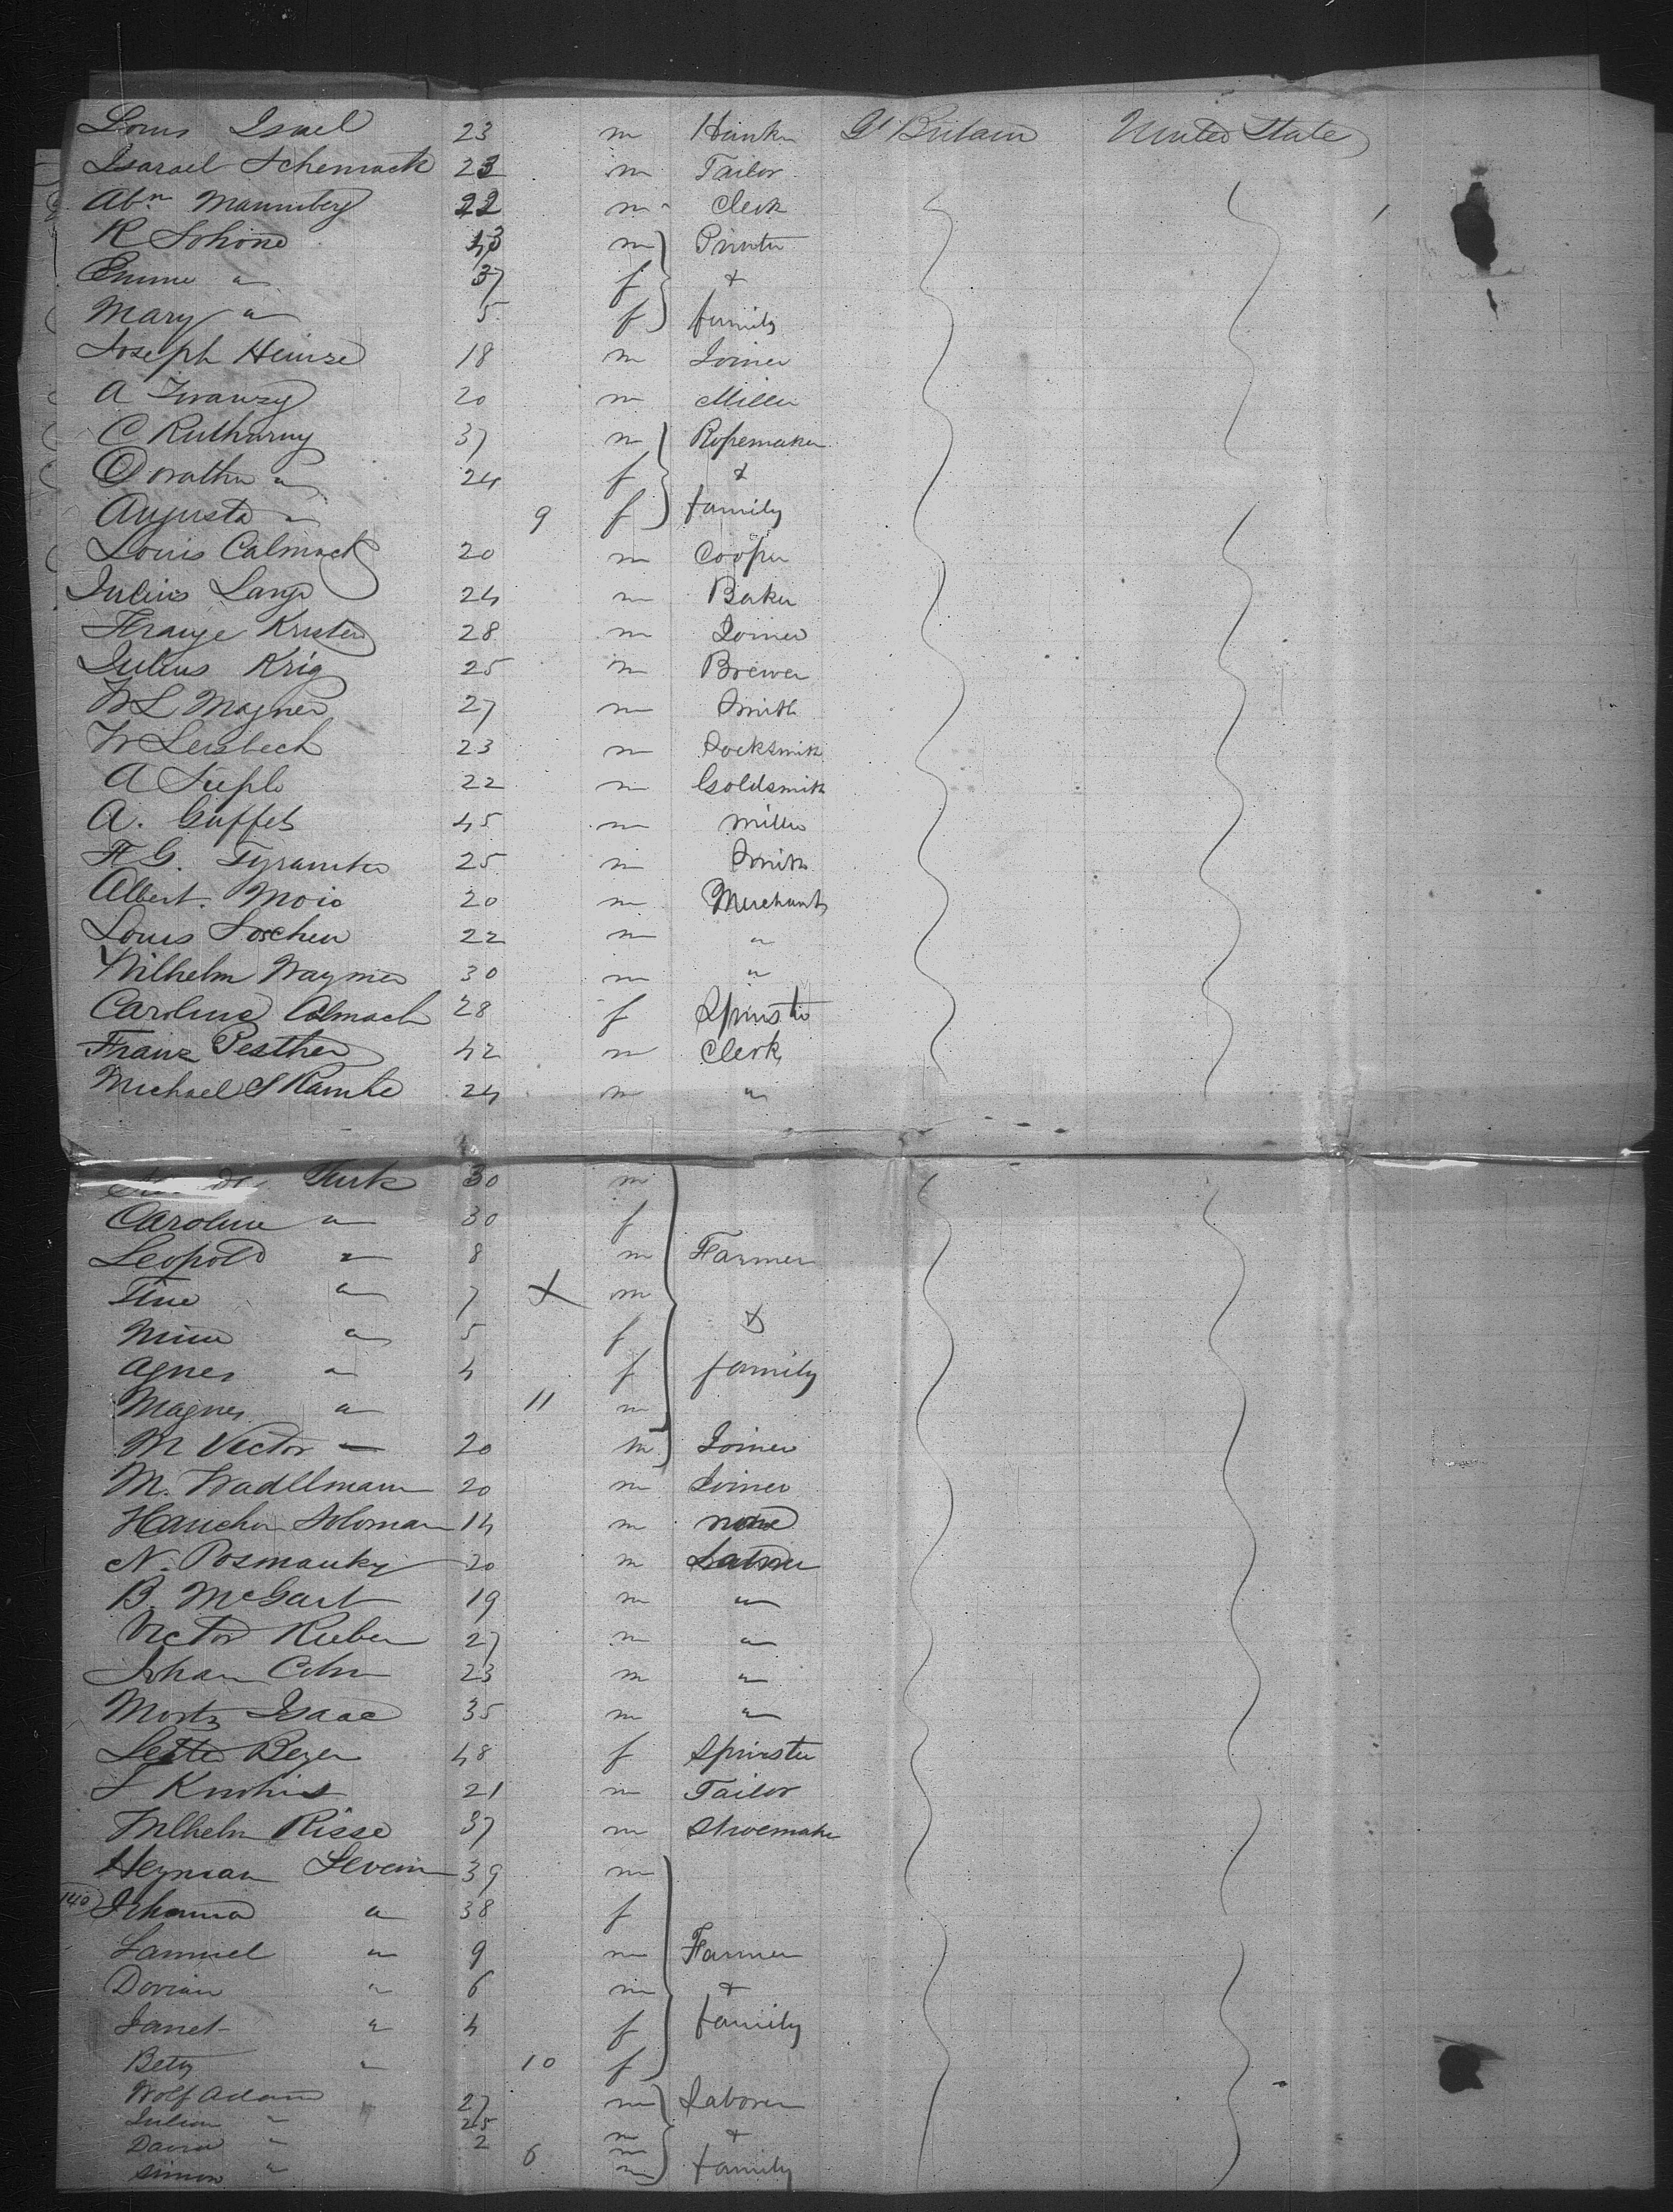 Louis Israel 23 m Gt Britain United State
Isarael Schemack 23 m Tailor
Abm Mannberg 22 m Clerk
R Schone 43 m } Printer
Emme " 37 f } &
Mary " 5 f } family
Joseph Heinze 18 m Joiner
A 20 m Miller
C 37 m } Ropemaker
Dorathea " 24 f } &
Augusta " 9 f } family
Louis Calmack 20 m Cooper
Julius Lange 24 m Baker
Krister 28 m Joiner
Julius Krig 25 m Brewer
W L Magner 27 m Smith
W Leisbech 23 m Locksmith
A 22 m Goldsmith
A. Guffet 45 m Miller
25 m Smith
Albert. Moio 20 m Merchant
Louis Soschen 22 m "
Wilhelm Waymer 30 m "
Caroline Calmach 28 f Spinster
Franz Pesther 42 m Clerk
Michael S Kamke 24 m "
Turk 30 m
Caroline " 30 f
Leopold " 8 m Farmer
Tine " 7 X m
Mine " 5 f &
Agnes " 4 f family
Magnes " 11 m
M Victor — 20 m Joiner
M. Wadllmann 20 m Joiner
Soloman 14 m none
N. Posmanky 20 m
B. McGart 19 m "
Victor Rieben 27 m "
Johan Cohn 23 m "
Moritz Isaac 35 m "
Lette Beyer 48 f Spinster
21 m Tailor
Wilhelm Risse 37 m Shoemaker
Heyman Levein 39 m
140 Johanna " 38 f
Samuel " 9 m Farmer
Dorian " 6 m &
Janet " 4 f family
Bety " 10 f
Wolf Adam 27 m Laborer
Julian " 25 m &
David " 2 m
Simon " 6 m family